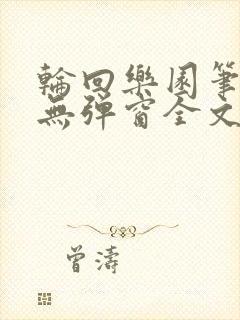 輪回樂園筆
無彈窗全文
曾濤